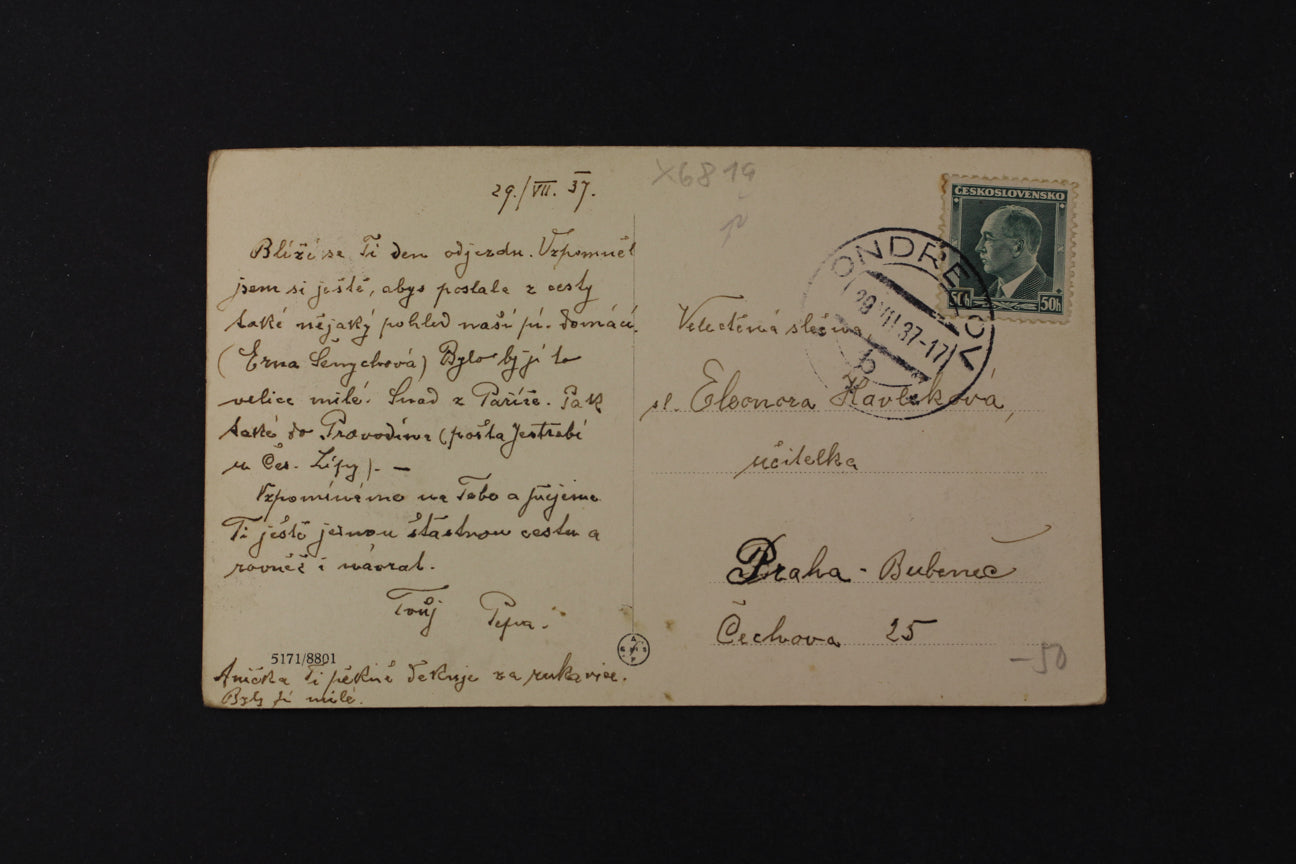 29./VII. 37.
Blíží se Ti den odjezdu. Vzpomněl
jsem si ještě, abys poslala z cesty
také nějaký pohled naší pí. domácí.
(Erna Šenychová) Bylo by jí to
velice milé. Snad z Paříže. Pak
také do Provodína (pošta Jestřebí
u Čes. Lípy). —
Vzpomínáme na Tebe a přejeme
Ti ještě jednou šťastnou cestu a
rovněž i návrat.
Tvůj Pepa.
5171/8801
Anička Ti pěkně děkuje za rukavice.
Byly jí milé.
X6819
ČESKOSLOVENSKO
50h 50h
ONDŘEJOV
29 VII 37-17
b
Veloctěná slečna
sl. Eleonora Havlíková,
učitelka
Praha - Bubeneč
Čechova 25
-50